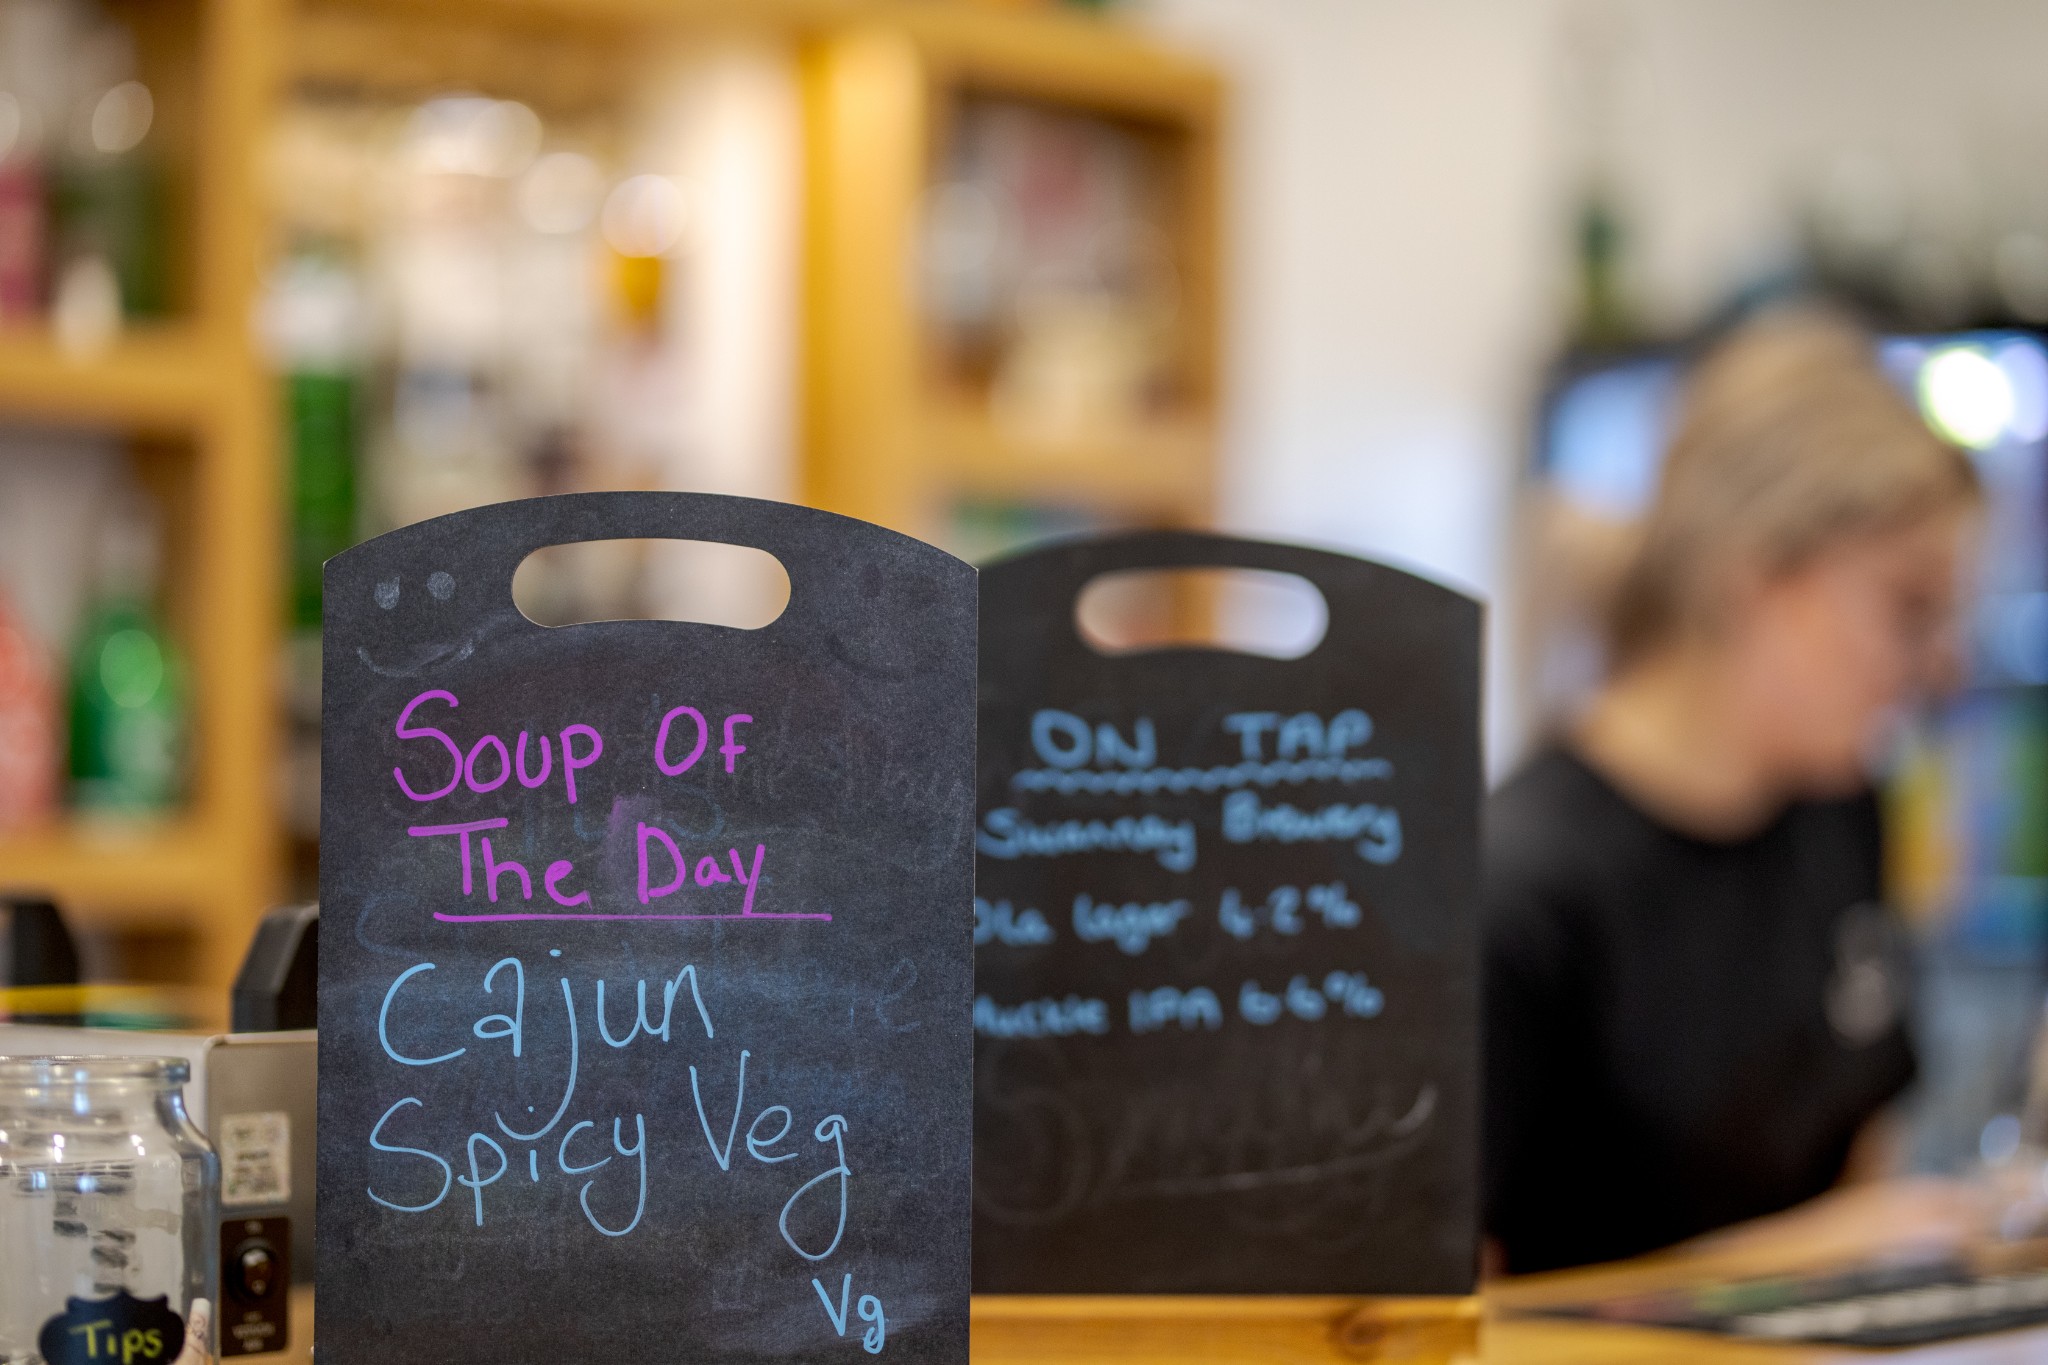 Soup Of
The Day
Cajun
Spicy Veg
Vg
ON TAP
Swannay Brewery
Lager
IPA 6.6%
Tips